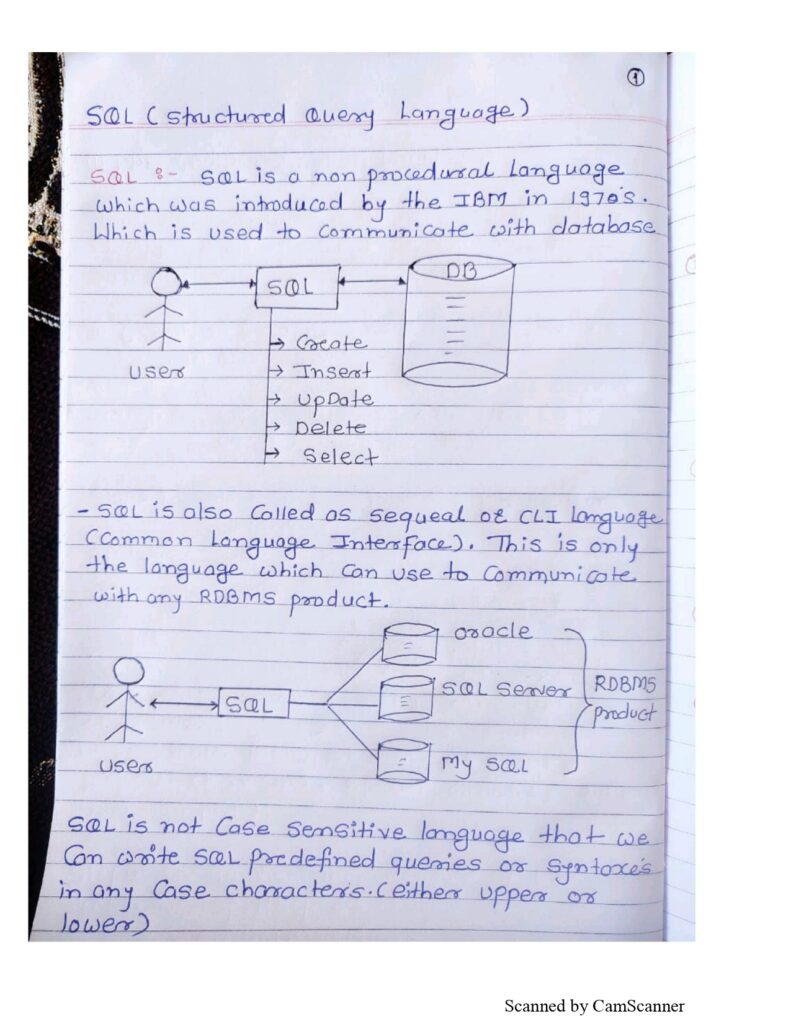 1
SQL (Structured Query Language)
SQL :- SQL is a non procedural Language
which was introduced by the IBM in 1970's.
Which is used to communicate with database
SQL
DB
User
→ Create
→ Insert
→ UpDate
→ Delete
→ Select
- SQL is also Called as sequeal or CLI language
(Common Language Interface). This is only
the language which can use to Communicate
with any RDBMS product.
oracle
SQL Server
My SQL
RDBMS
product
SQL
User
SQL is not Case sensitive language that we
Can write SQL predefined queries or syntaxe's
in any Case characters. (either upper or
lower)
Scanned by CamScanner